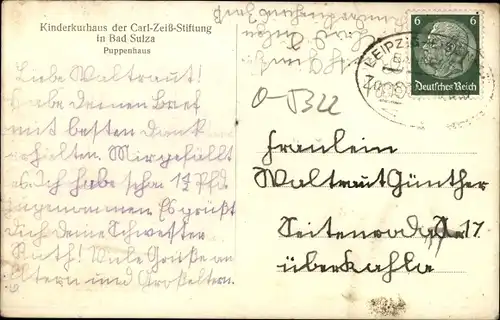 Kinderkurhaus der Carl-Zeiß-Stiftung
in Bad Sulza
Puppenhaus
Liebe Waltraut!
Habe deinen Brief
mit besten Dank
erhalten. Mir gefällt
es. Ich habe schon 1½ Pfd
zugenommen. Es grüßt
Dich deine Schwester
Ruth! Viele Grüße an
Eltern und Großeltern.
6 6
Deutsches Reich
LEIPZIG
O-5322
Fräulein
Waltraut Günther
Seitenroda 17
über Kahla